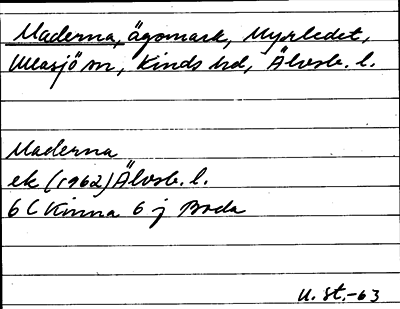 Maderna, ägomark, Myrledet,
Ullasjö sn, Kinds hd, Älvsb. l.
Maderna
ek (1962) Älvsb. l.
6 C Kinna 6 j Boda
U. St.-63